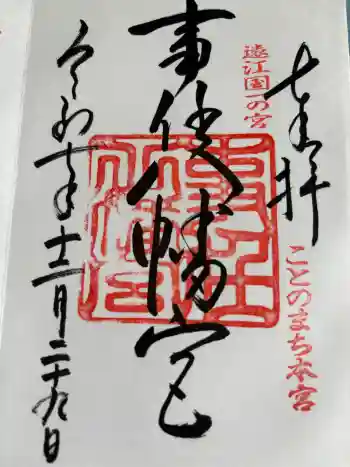 奉拝
遠江国一の宮
ことのまち本宮
事任八幡宮
令和 年十二月二十九日